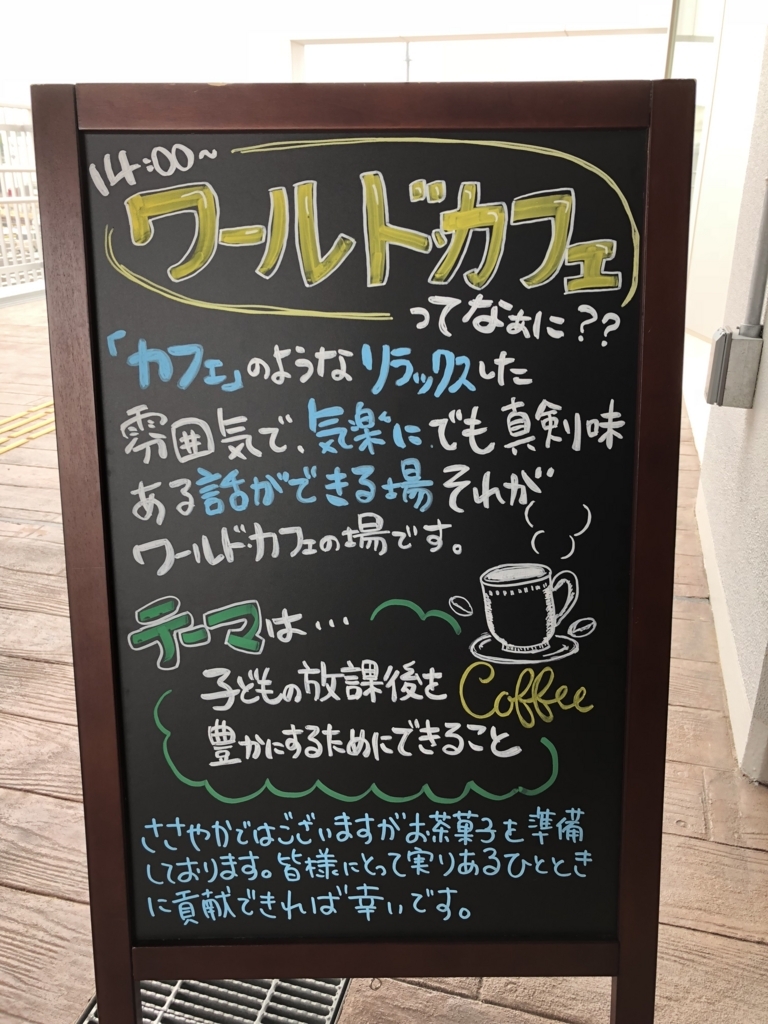 14:00~
ワールドカフェ
ってなぁに??
「カフェ」のようなリラックスした
雰囲気で、気楽に、でも真剣味
ある話ができる場それが
ワールドカフェの場です。
テーマは…
子どもの放課後を
Coffee
豊かにするためにできること
ささやかではございますがお茶菓子を準備
しております。皆様にとって実りあるひととき
に貢献できれば幸いです。